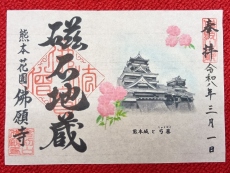 奉拝
令和八年三月一日
磁石地蔵
熊本花園
佛願寺
熊本城と弓幕